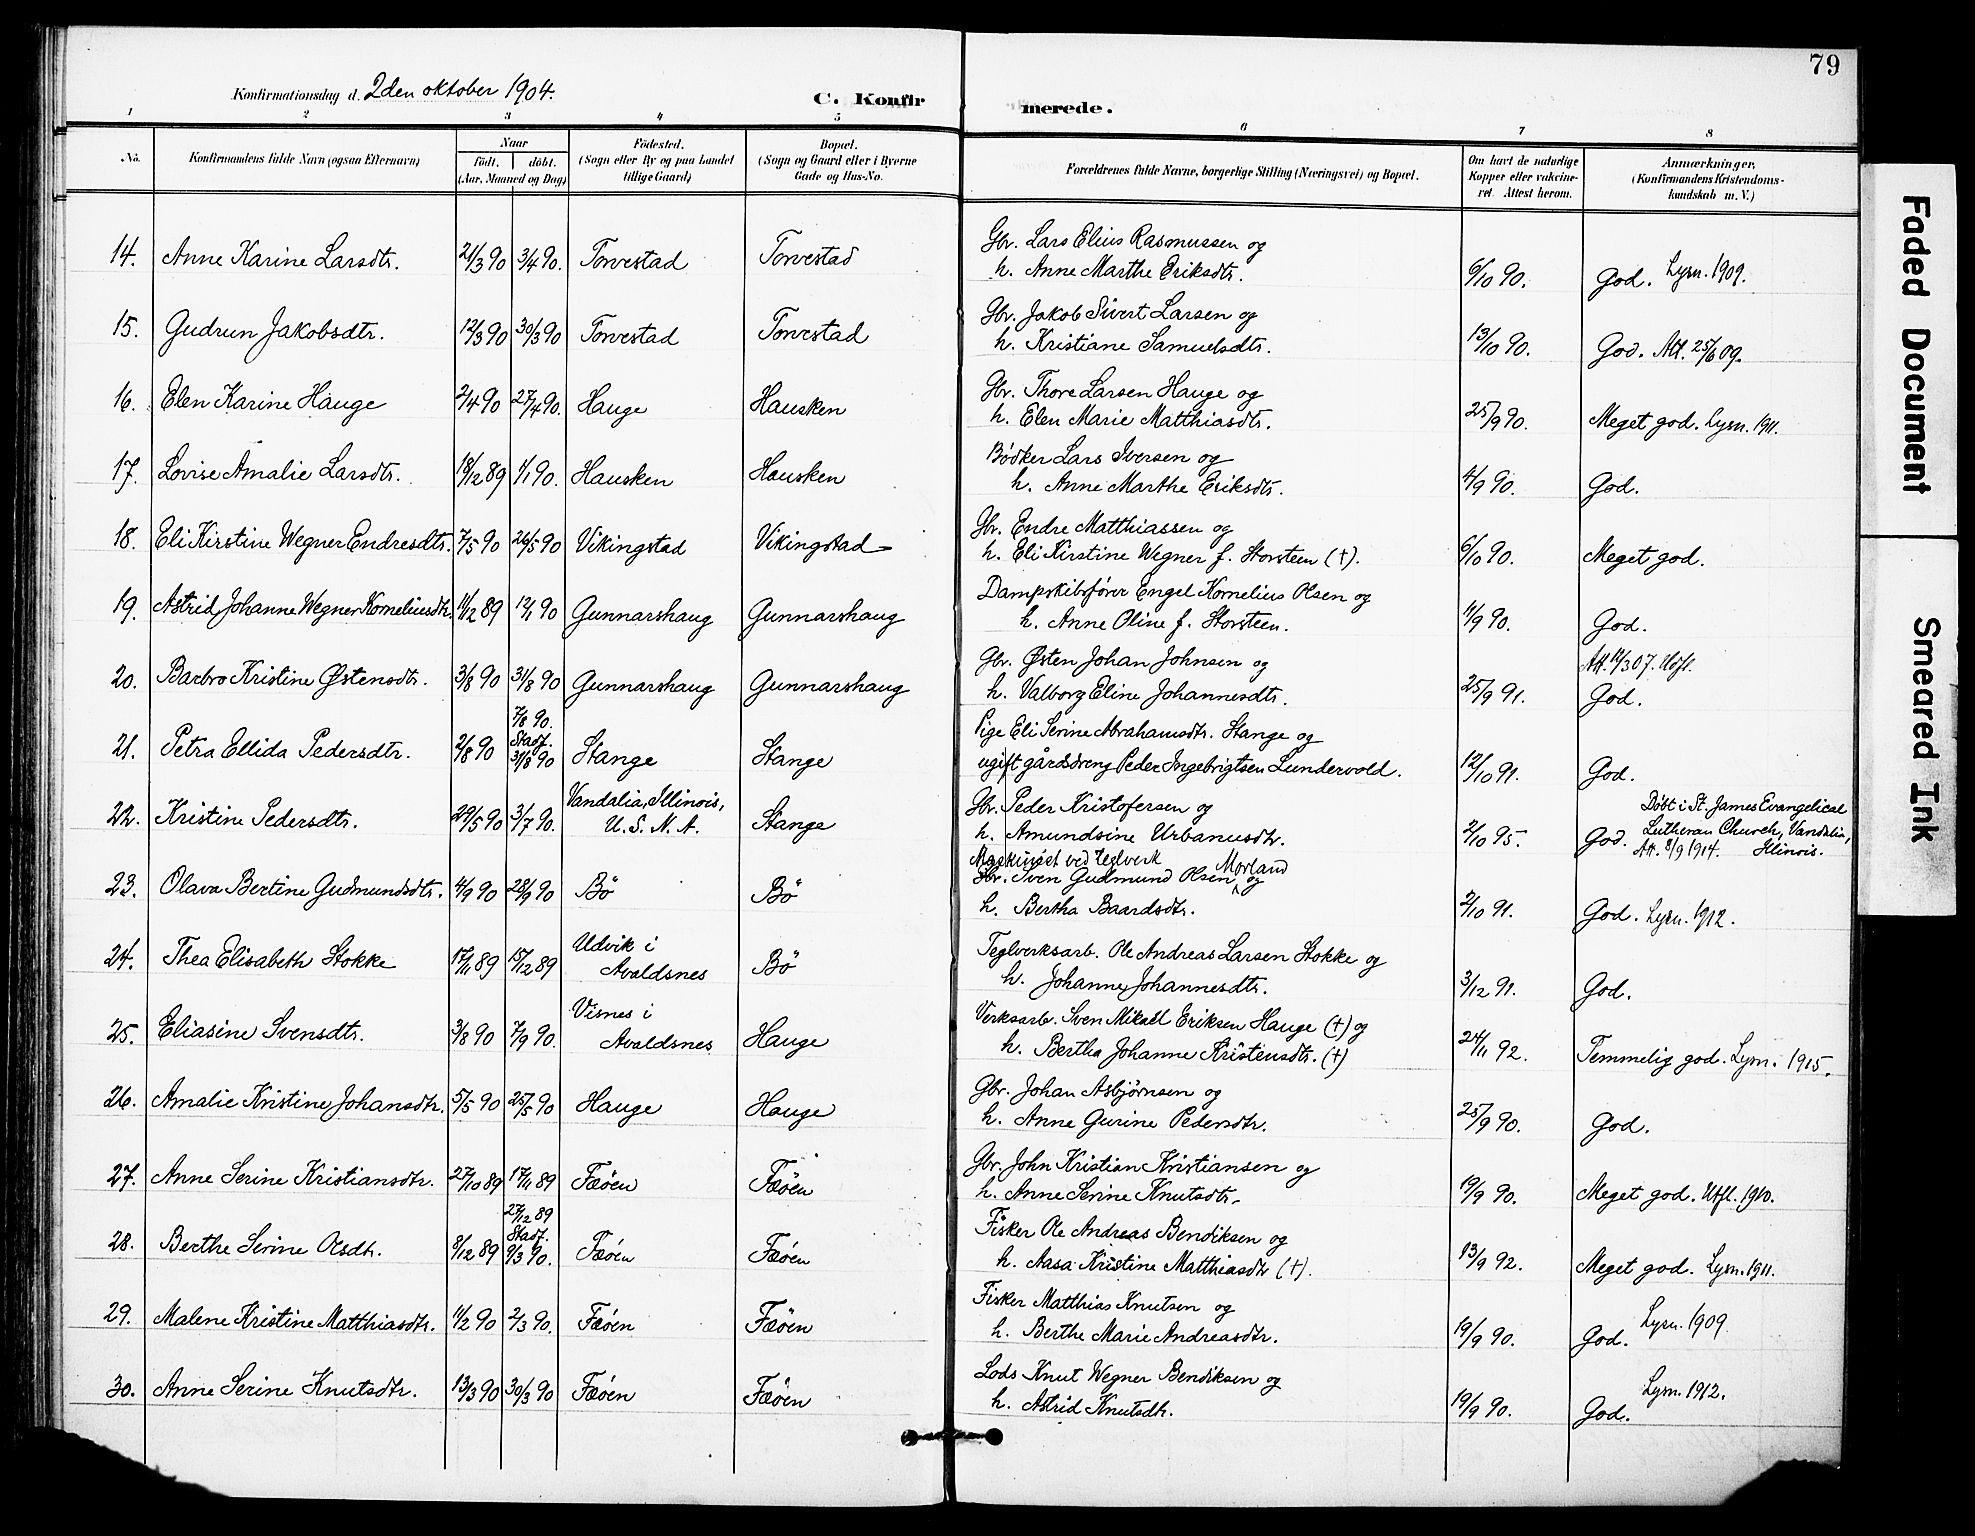 79
Konfirmationsdag d. 2den oktober 1904.
C. Konfirmerede.
1 2 3 4 5 6 7 8
No.
Konfirmandens fulde Navn (ogsaa Efternavn)
Naar
födt. döbt.
(Aar, Maaned og Dag)
Födested.
(Sogn eller By og paa Landet
tillige Gaard)
Bopæl.
(Sogn og Gaard eller i Byerne
Gade og Hus-No.
Forældrenes fulde Navne, borgerlige Stilling (Næringsvei) og Bopæl.
Om havt de naturlige
Kopper eller vakcine-
ret. Attest herom.
Anmærkninger.
(Konfirmandens Kristendoms-
kundskab m. V.)
14. Anne Karine Larsdtr. 21/3 90 3/4 90. Torvestad Torvestad
Gbr. Lars Elius Rasmussen og
h. Anne Marthe Eriksdtr. 6/10 90. God. Lysn. 1909.
15. Gudrun Jakobsdtr. 12/3 90 30/3 90 Torvestad Torvestad
Gbr. Jakob Sivert Larsen og
h. Kristiane Samuelsdtr. 13/10 90. God. Att. 25/6 09.
16. Elen Karine Hauge 2/4 90 27/4 90. Hauge Hausken
Gbr. Thore Larsen Hauge og
h. Elen Marie Matthiasdtr. 25/9 90. Meget god. Lysn. 1911.
17. Lovise Amalie Larsdtr. 18/12 89 1/1 90. Hausken Hausken
Bödker Lars Iversen og
h. Anne Marthe Eriksdtr. 4/9 90. God.
18. Eli Kirstine Wegner Endresdtr. 7/5 90 26/5 90 Vikingstad Vikingstad
Gbr. Endre Matthiassen og
h. Eli Kirstine Wegner f. Storsteen (†). 6/10 90. Meget god.
19. Astrid Johanne Wegner Korneliusdtr. 11/12 89 12/1 90 Gunnarshaug Gunnarshaug
Dampskibsfører Engel Kornelius Olsen og
h. Anne Oline f. Storsteen. 11/9 90. God.
20. Barbro Kristine Østensdtr. 3/8 90 31/8 90 Gunnarshaug Gunnarshaug
Gbr. Østen Johan Johnsen og Att. 12/3 07. Utfl.
h. Valborg Eline Johannesdtr. 25/9 91. God.
21. Petra Ellida Pedersdtr. 2/8 90 7/8 90. Stadf. 31/8 90 Stange Stange
Pige Eli Serine Abrahamsdtr. Stange og
ugift gårdsdreng Peder Ingebrigtsen Lundervold. 12/10 91. God.
22. Kristine Pedersdtr. 29/5 90 3/7 90. Vandalia, Illinois, U. S. N. A. Stange
Gbr. Peder Kristofersen og Döbt i St. James Evangelical
h. Amundsine Urbanusdtr. 2/10 95. God. Lutheran Church, Vandalia,
Att. 8/9 1914. Illinois.
Maskinist ved Teglverk
23. Olava Bertine Gudmundsdtr. 4/9 90 28/9 90 Bö Bö
Gbr. Sven Gudmund Olsen Morland og
h. Bertha Baardsdtr. 2/10 91. God. Lysn. 1912.
24. Thea Elisabeth Stokke 17/11 89 15/12 89 Udvik i Avaldsnes Bö
Teglverksarb. Ole Andreas Larsen Stokke og
h. Johanne Johannesdtr. 3/12 91. God.
25. Eliasine Svensdtr. 3/8 90 7/9 90. Visnes i Avaldsnes Hauge
Verksarb. Sven Mikael Eriksen Hauge (†) og
h. Bertha Johanne Kristensdtr. (†) 24/11 92. Temmelig god. Lysn. 1915.
26. Amalie Kristine Johansdtr. 5/5 90 25/5 90 Hauge Hauge
Gbr. Johan Asbjørnsen og
h. Anne Gurine Pedersdtr. 25/9 90. God.
27. Anne Serine Kristiansdtr. 27/10 89 17/11 89 Fæöen Fæöen
Gbr. John Kristian Kristiansen og
h. Anne Serine Knutsdtr. 19/9 90. Meget god. Utfl. 1910.
28. Berthe Serine Olsdtr. 8/12 89 27/12 89 Stadf. 9/3 90. Fæöen Fæöen
Fisker Ole Andreas Bendiksen og
h. Aasa Kristine Matthiasdtr (†). 13/9 92. Meget god. Lysn. 1911.
29. Malene Kristine Matthiasdtr. 11/2 90 2/3 90. Fæöen Fæöen
Fisker Matthias Knutsen og
h. Berthe Marie Andreasdtr. 19/9 90. God. Lysn. 1909.
30. Anne Serine Knutsdtr. 13/3 90 30/3 90 Fæöen Fæöen
Lods Knut Wegner Bendiksen og
h. Astrid Knutsdtr. 19/9 90. God. Lysn. 1912.
Faded Document
Smeared Ink